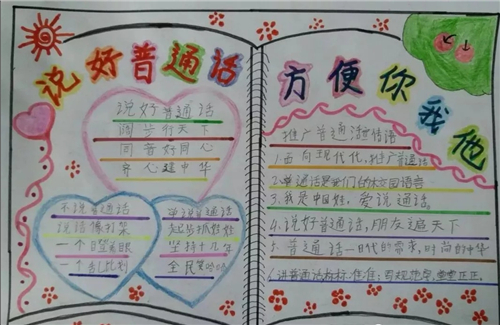 说好普通话
方便你我他
说好普通话
阔步行天下
同音好同心
齐心建中华
不说普通话
说话像打架
一个日望着眼
一个乱比划
学说普通话
起步抓娃娃
坚持十几年
全民笑哈哈
推广普通话标语
1.面向现代化，推广普通话
2.普通话是我们的校园语言
3.我是中国娃，爱说普通话
4.说好普通话，朋友遍天下
5.普通话——时代的需求，时尚的中华
6.讲普通话标标准准：写规范字，堂堂正正。